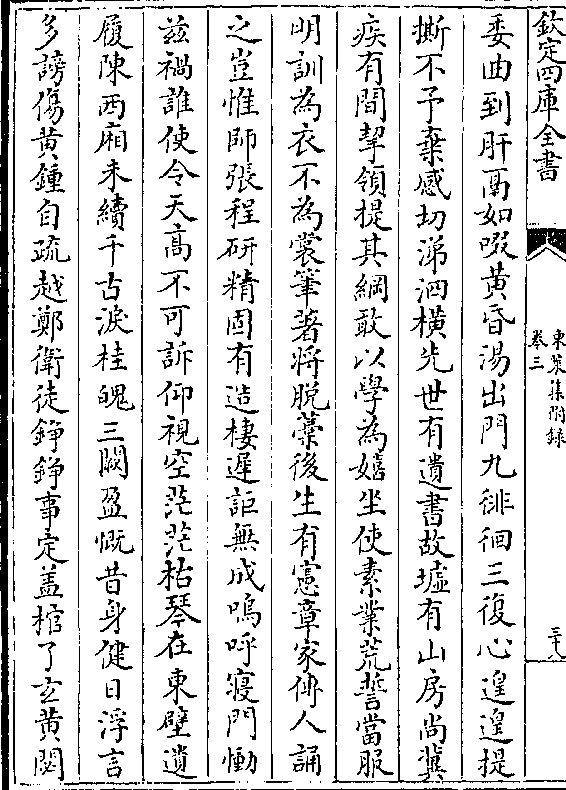 欽定四庫全書
東萊集附錄
卷三
三十八
委曲到肝鬲如啜黄昏湯出門九徘徊三復心遑遑提
撕不予棄感切涕泗橫先世有遺書故墟有山房尚冀
疾有間挈領提其綱敢以學為嬉坐使素業荒誓當服
明訓為衣不為裳筆著將脱藁後生有憲章家傳人誦
之豈惟師張程研精固有造棲遲詎無成嗚呼寢門慟
兹禍誰使令天高不可訴仰視空茫茫枯琴在東壁遺
履陳西廂未續千古淚桂魄三闕盈慨昔身健日浮言
多謗傷黄鍾自疏越鄭衛徒錚錚事定蓋棺了玄黄閟